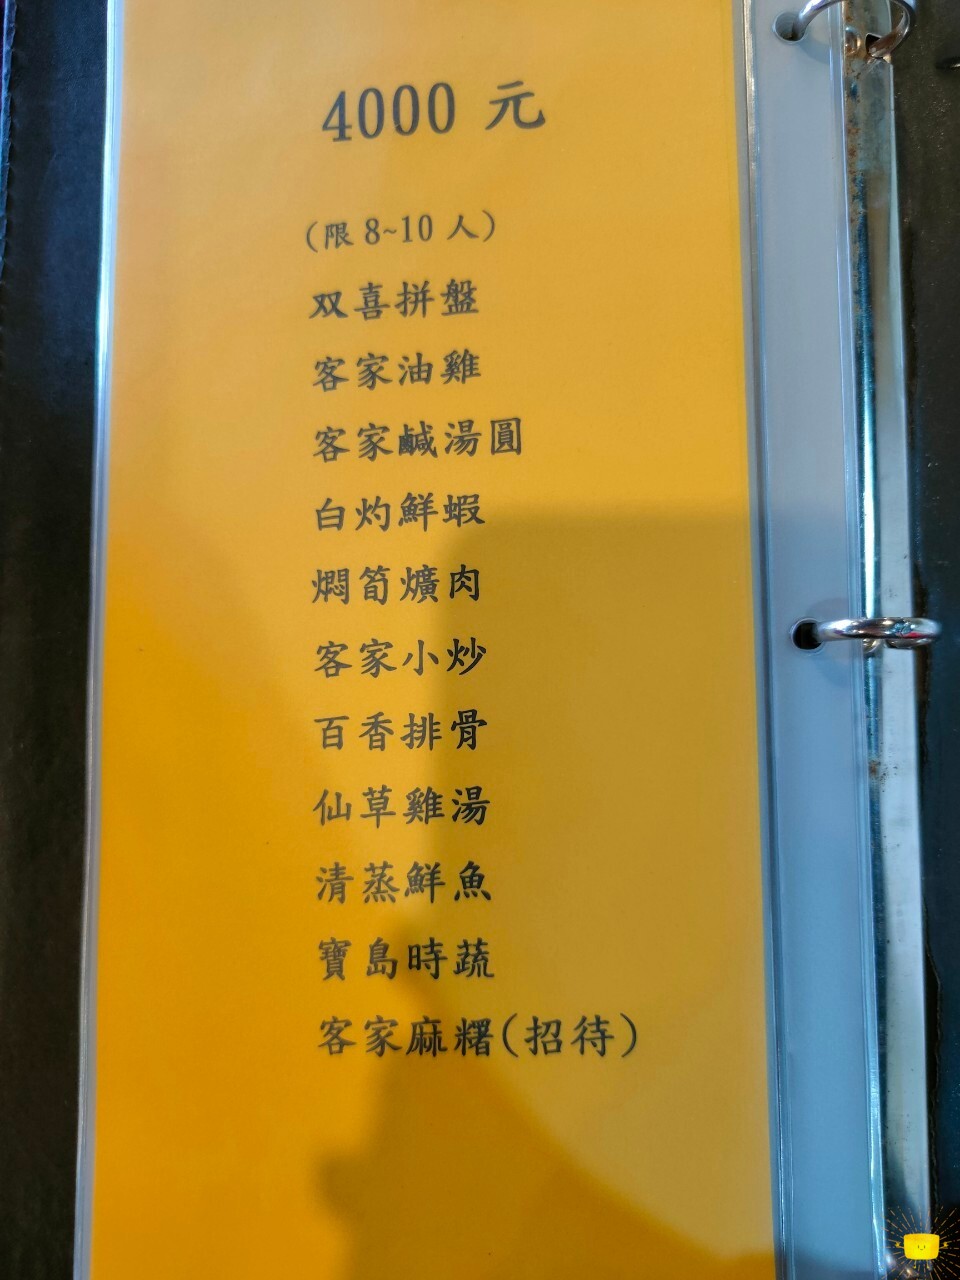 4000 元
（限 8~10 人）
双喜拼盤
客家油雞
客家鹹湯圓
白灼鮮蝦
燜筍爌肉
客家小炒
百香排骨
仙草雞湯
清蒸鮮魚
寶島時蔬
客家麻糬（招待）